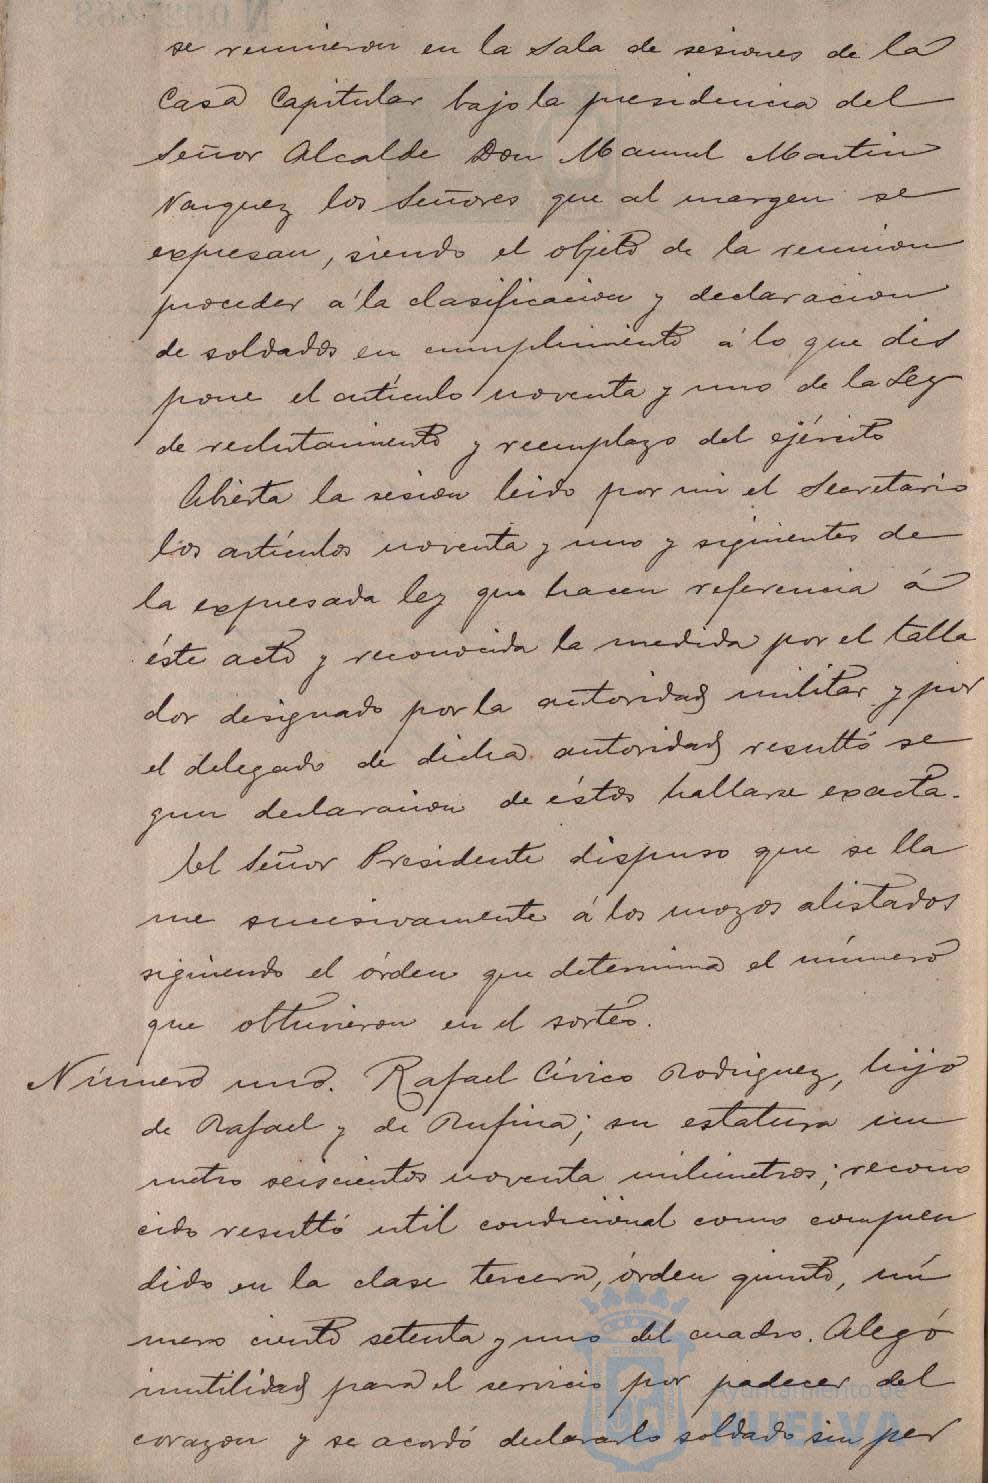 se reunieron en la sala de sesiones de la
Casa Capitular bajo la presidencia del
Señor Alcalde Don Manuel Martin
Vazquez los Señores que al margen se
expresan, siendo el objeto de la reunion
proceder á la clasificacion y declaracion
de soldados en cumplimiento á lo que dis
pone el artículo noventa y uno de la Ley
de reclutamiento y reemplazo del ejército
Abierta la sesion leido por mi el Secretario
los artículos noventa y uno y siguientes de
la expresada ley que hacen referencia á
éste acto y reconocida la medida por el talla
dor designado por la autoridad militar y por
el delegado de dicha autoridad resultó se
gun declaracion de éstos hallarse exacta.
El Señor Presidente dispuso que se lla
me sucesivamente á los mozos alistados
siguiendo el órden que determina el número
que obtuvieron en el sorteo.
Número uno. Rafael Cívico Rodriguez, hijo
de Rafael y de Rufina; su estatura un
metro seiscientos noventa milimetros; recono
cido resultó util condicional como compren
dido en la clase tercera, órden quinto, nú
mero ciento setenta y uno del cuadro. Alegó
inutilidad para el servicio por padecer del
corazon y se acordó declararlo soldado sin per
Ayuntamiento de
HUELVA